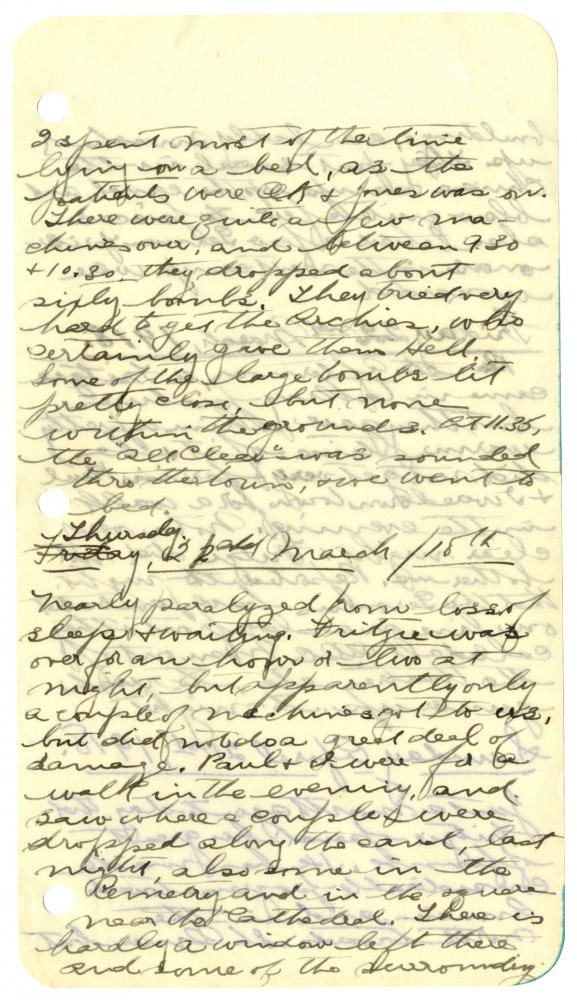 I spent most of the time
lying on a bed, as the
patients were OK & Jones was on.
There were quite a few ma-
chines over, and between 9.30
& 10.30, they dropped about
sixty bombs. They tried very
hard to get the Archies, who
certainly gave them Hell.
Some of the large bombs lit
pretty close, but none
within the grounds. At 11.35,
the "All Clear" was sounded
thro the town, & we went to
bed.
Thursday
Friday, March / 18th
Nearly paralyzed from loss of
sleep & waiting. Fritzie was
over for an hour or two at
night, but apparently only
a couple of machines got to us,
but did not do a great deal of
damage. Paul & I were for a
walk in the evening, and
saw where a couple were
dropped along the canal, last
night, also some in the
Cemetry and in the square
near the Cathedral. There is
hardly a window left there
and some of the surrounding